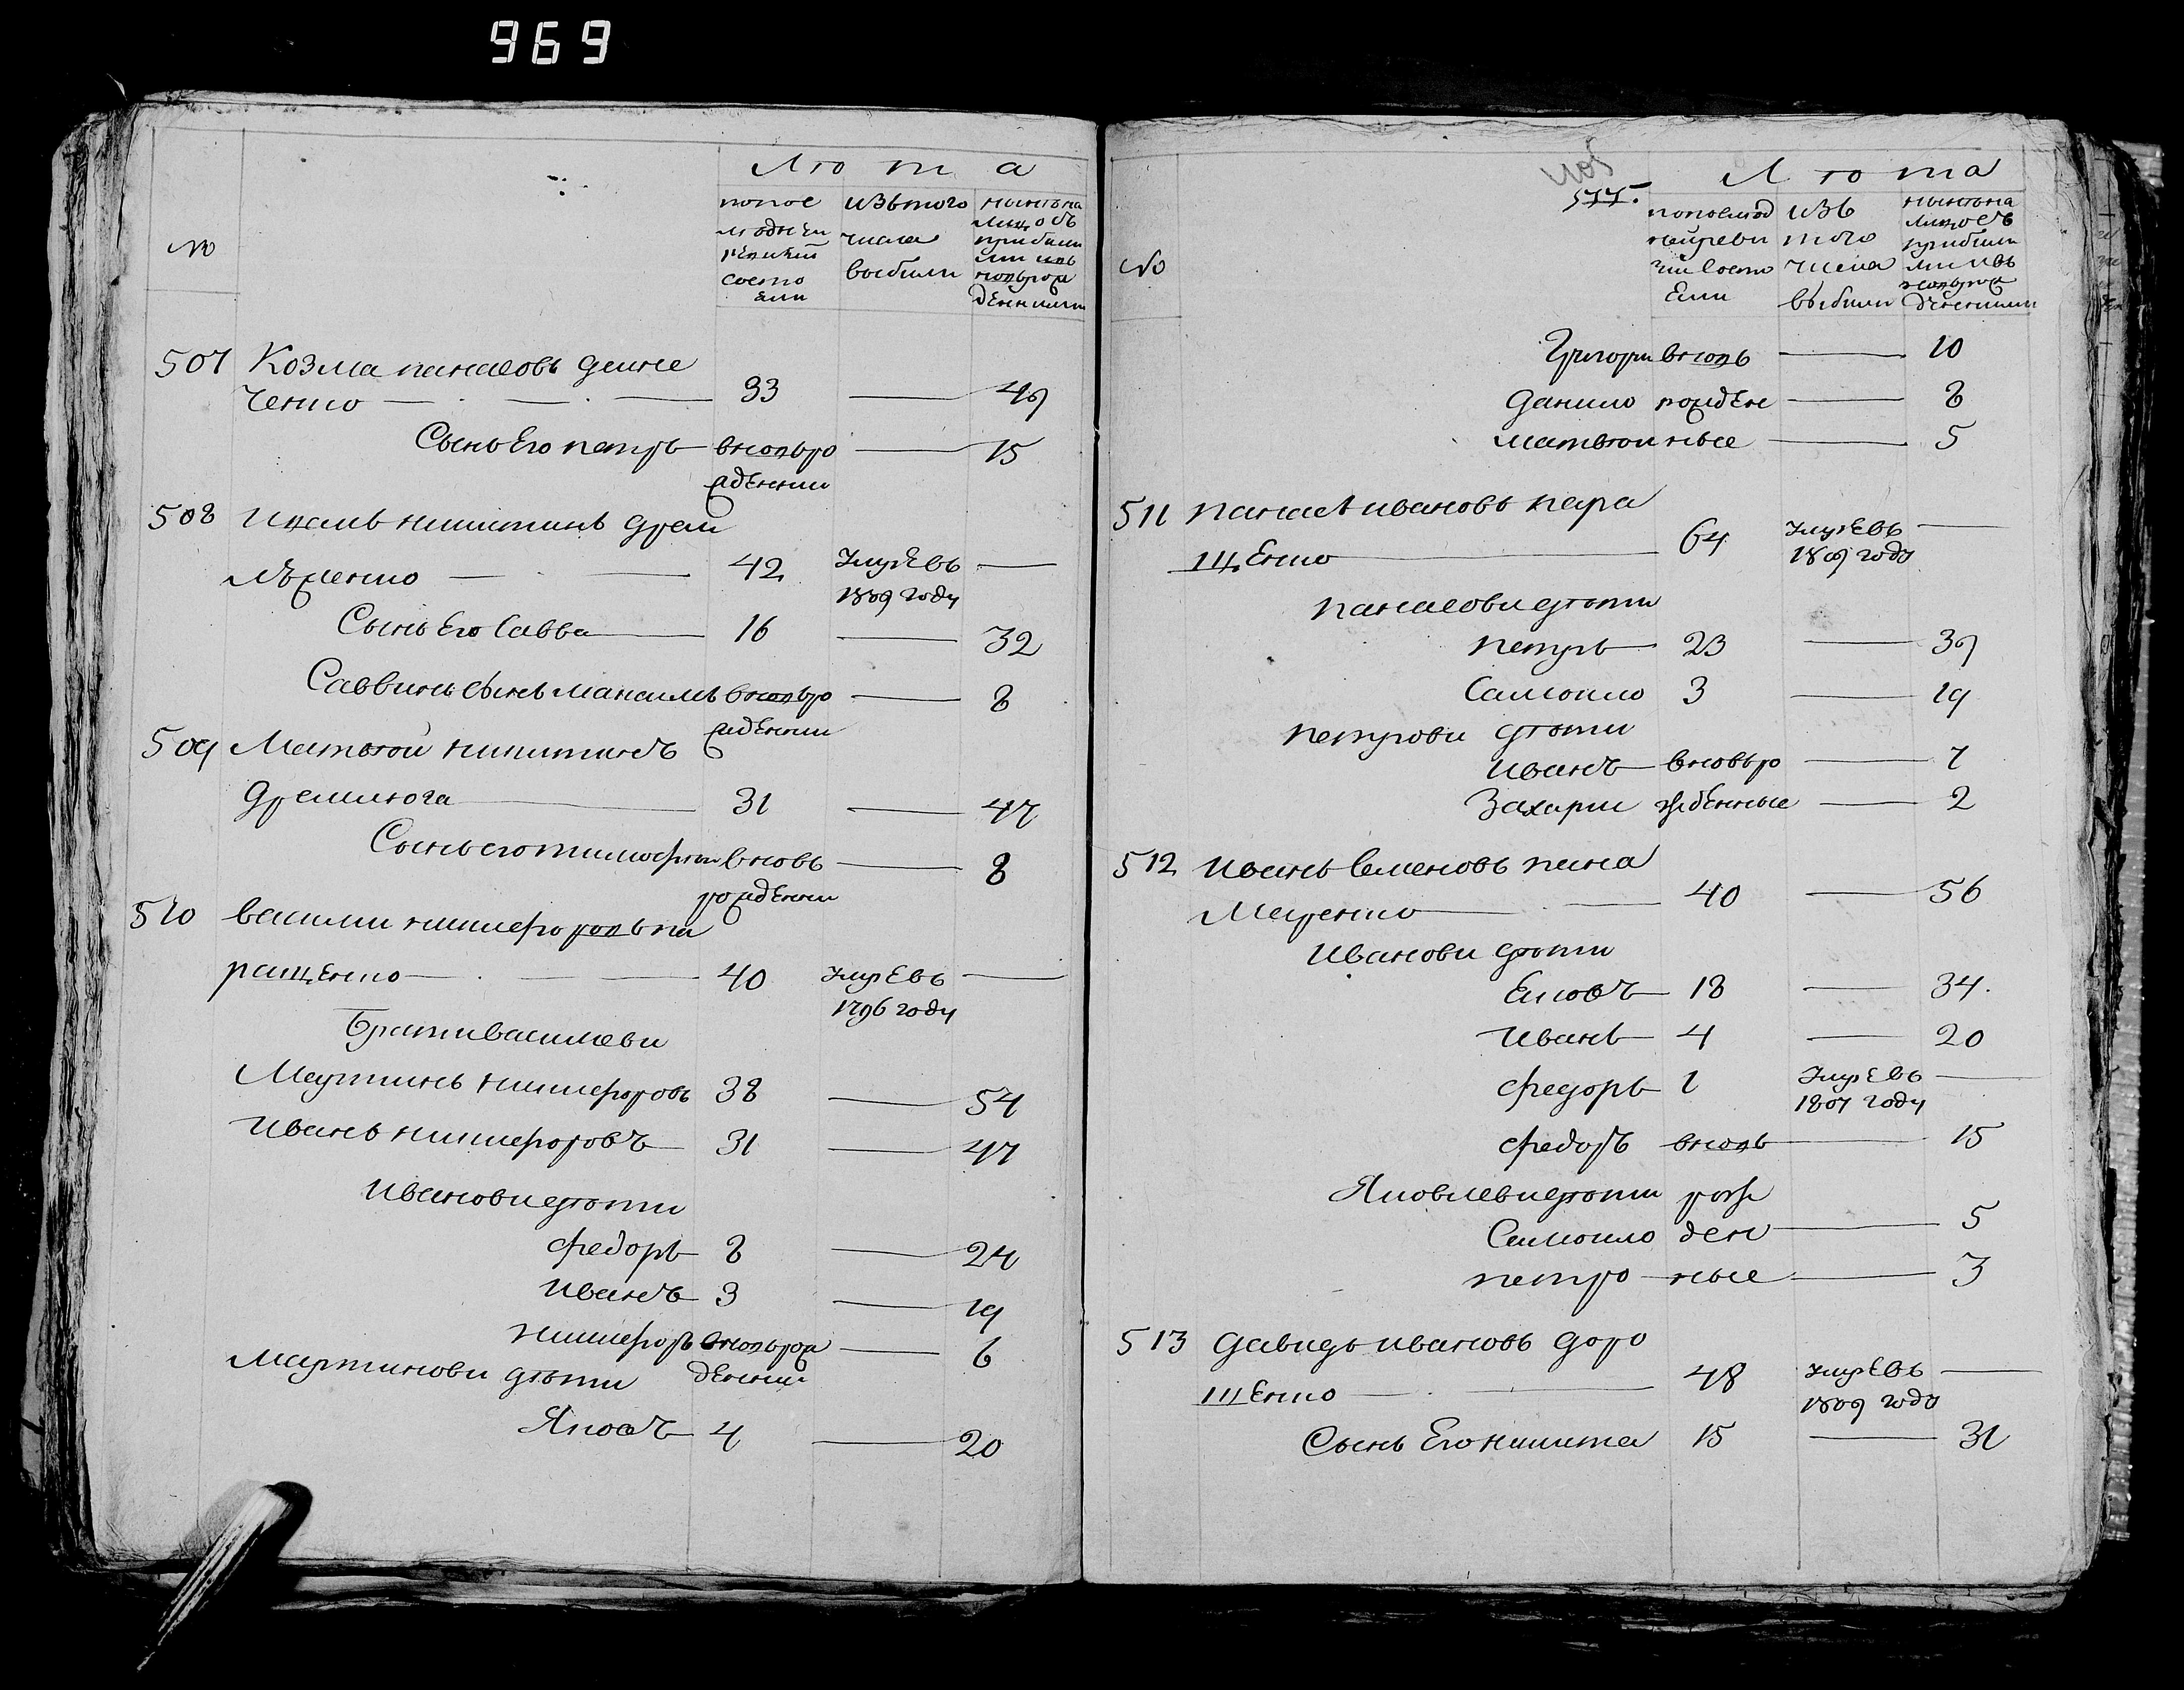 969
Люта
№
попос
ледней
ревизии
состо
яли
изътого
числа
выбыли
ныньна
лицо съ
прибыли
ми изъ
новърож
денними
507 Козма панасовъ денне
ченко 33 — 49
Сынь Его петръ вновъро — 15
жденни
508 никитинъ дрем
лженко 42 Умреъ —
1809 году
Сынъ Его Савва 16 — 32
Саввинъ сынъ максимъ вновъро — 8
жденни
509 Матвей никитинъ
дремлюга 31 — 47
Сынъ его тимофей вновъ — 8
рожденни
510 василий никифоровъ па
ращенко 40 Умревъ —
1796 году
Брати василиеви
Мартинъ никифоровъ 38 — 54
Иванъ никифоровъ 31 — 47
Иванови дети
федоръ 8 — 24
Иванъ 3 — 19
никифоръ вновьрож — 6
денний
Мартинови дети
Яковъ 4 — 20
577.
Люта
№
попослед
нейреви
зии состо
яли
изъ
того
числа
выбыли
ныньна
лицо съ
прибыли
ми изъ
новърож
денними
Григори вновь — 10
данило рожден — 8
матвей ные — 5
511 панасъ ивановъ пара
щенко 64 Умревъ —
1809 году
панасови дети
петръ 23 — 39
Самоило 3 — 19
петрови дети
иванъ вновьро — 7
Захарии жденные — 2
512 иванъ Семеновъ пана
Маренко 40 — 56
Иванови дети
Яковъ 18 — 34
Иванъ 4 — 20
федоръ 1 Умревъ —
1807 году
федоръ вновъ — 15
Яковлеви дети рож
Самоило ден — 5
петро ные — 3
513 давидъ ивановъ доро
шенко 48 Умревъ —
1809 году
Сынъ Его никита 15 — 31